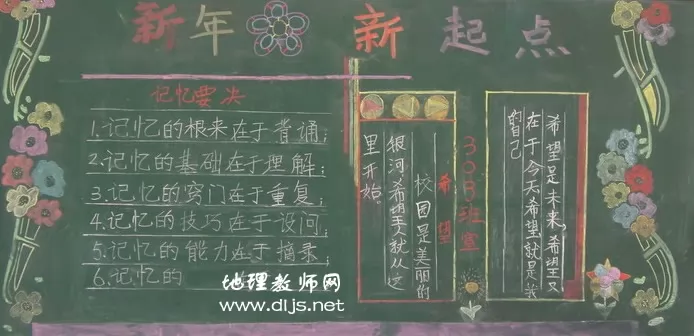 新年 新起点
记忆要决
1.记忆的根来在于背诵;
2.记忆的基础在于理解;
3.记忆的窍门在于重复;
4.记忆的技巧在于设问;
5.记忆的能力在于摘录;
6.记忆的
希望
校园是美丽的
银河希望又就从这
里开始。
303班宣
希望是未来,希望又
在于今天希望就是我
的自己
地理教师网
www.dljs.net